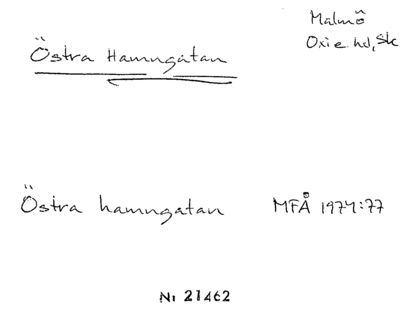 Malmö
Östra Hamngatan
Oxie hd, Sk
Östra hamngatan MFÅ 1974:77
Nr 21462